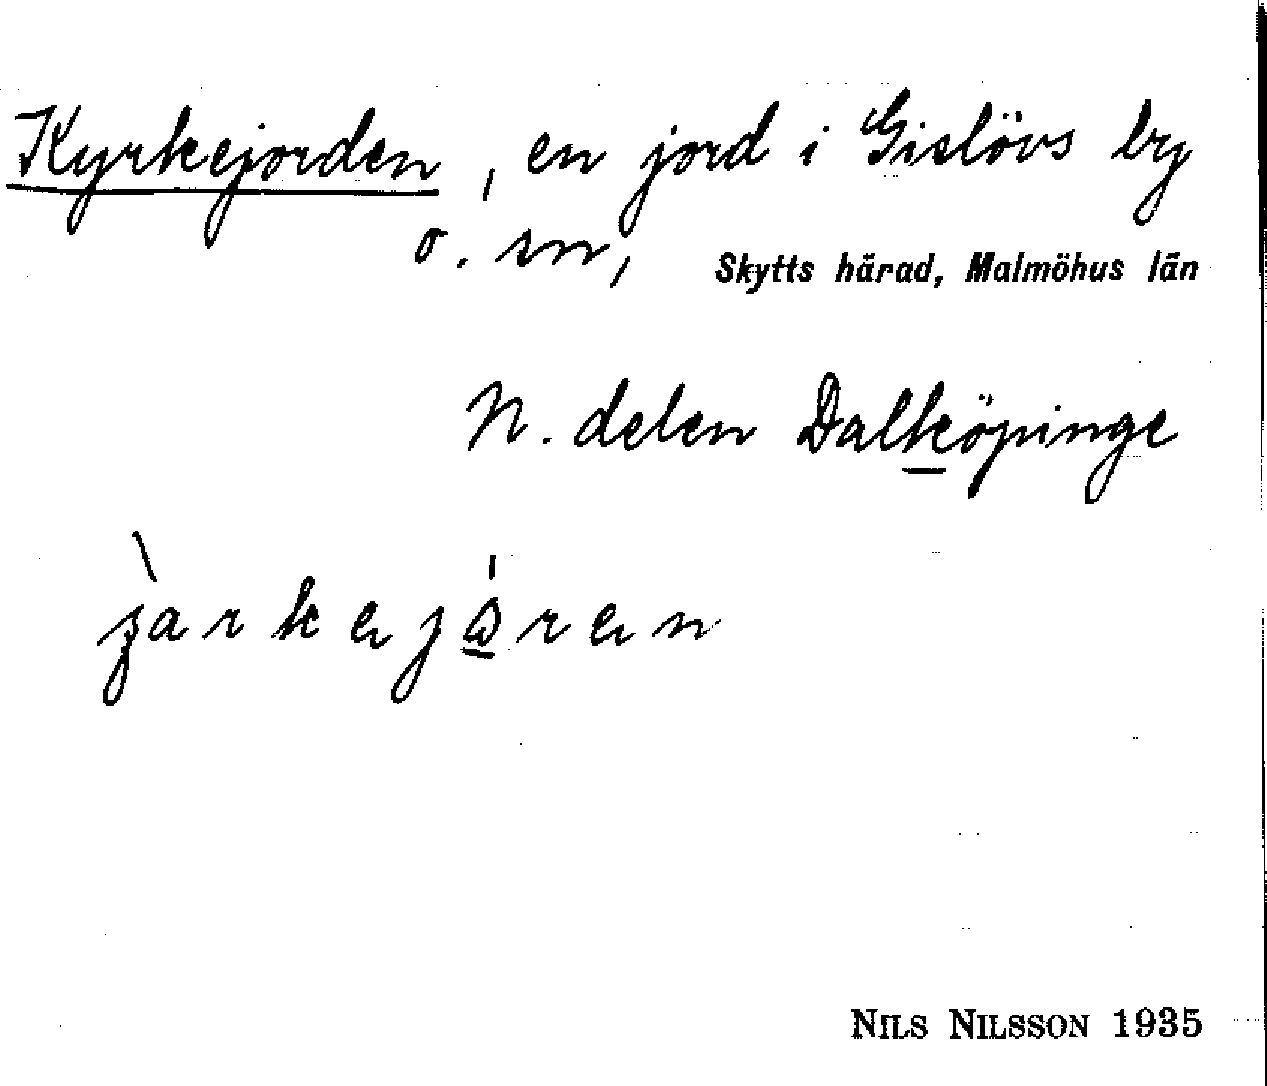 Kyrkejorden, en jord i Gislövs by
o. sn, Skytts härad, Malmöhus län
N. delen Dalköpinge
Nils Nilsson 1935